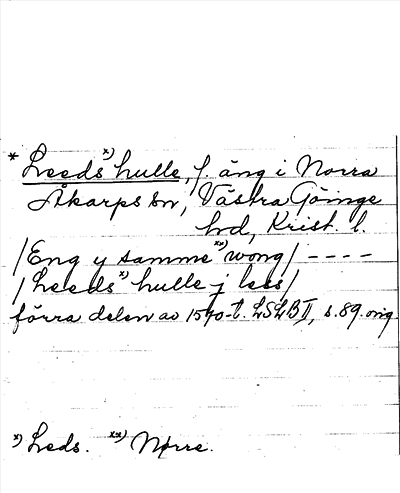 * Leeds x) hulle, f. äng i Norra
Åkarps sn, Västra Göinge
hd, Krist. l.
/Eng y samme xx) wong/ - - - -
/Leeds x) hulle j less/
förra delen av 1570-t. LSLB II, s. 89. orig.
x) Leds. xx) Nørre.